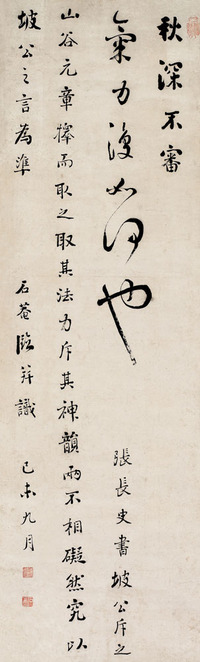 秋深不審
氣力復如何也
張長史書坡公斥之
山谷元章擇而取之取其法力斥其神韻兩不相礙然究以
坡公之言為準
石菴臨并識
己未九月